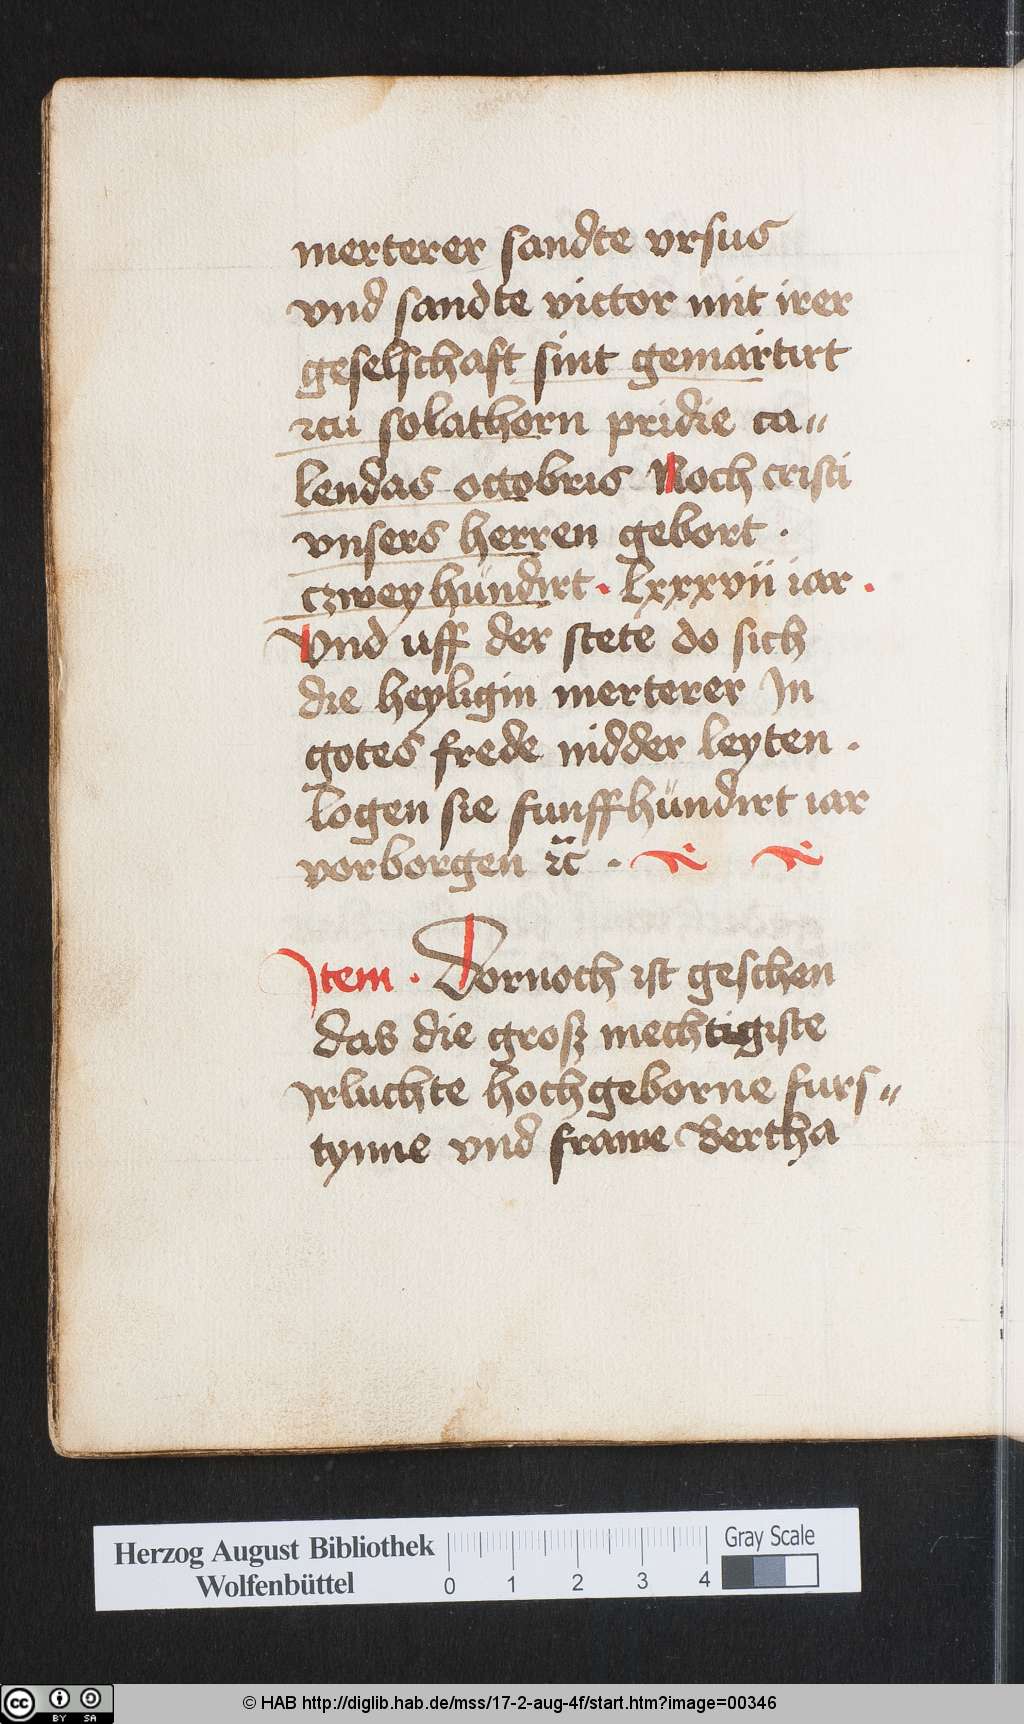 merterer sandte vrsus
vnd sandte victor mit irer
geselschaft sint gemartirt
zcu solathorn pridie ca„
lendas octobris Noch cristi
vnsers herren gebort .
czwey hundirt . lxxxvii iar .
Vnd uff der stete do sich
die heyligin merterer In
gotes frede nidder leyten .
logen sie funffhundirt iar
vorborgen ꝛc̄ .
Item . Dornoch ist geschen
das die groß mechtigiste
irluchte hochgeborne furs„
tynne vnd frawe Bertha
Herzog August Bibliothek
Wolfenbüttel
0 1 2 3 4
Gray Scale
cc BY SA
© HAB http://diglib.hab.de/mss/17-2-aug-4f/start.htm?image=00346